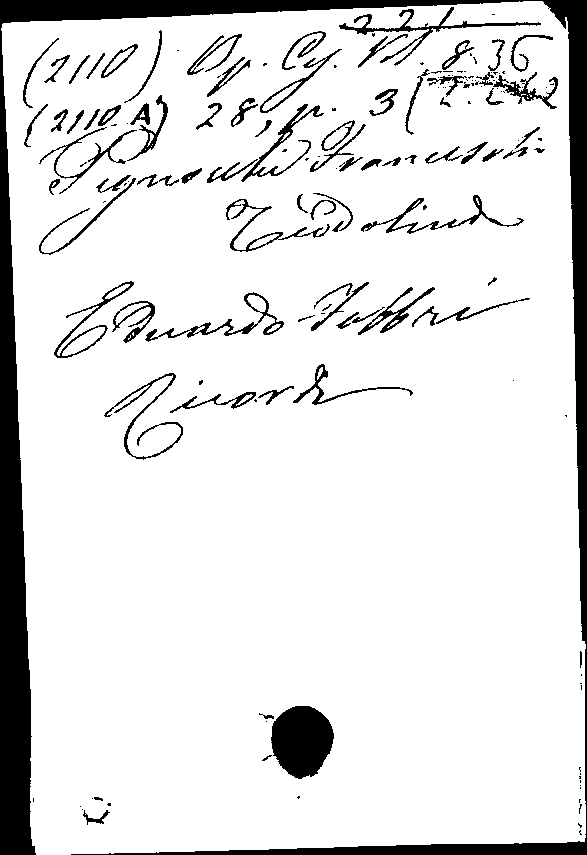 221.
(2110) Op. Cy. Vol. 836
(2110 A) 28, p. 3 (
Pignocchi Franceschi
Teodolinda
Eduardo Fabbri
Ricordi